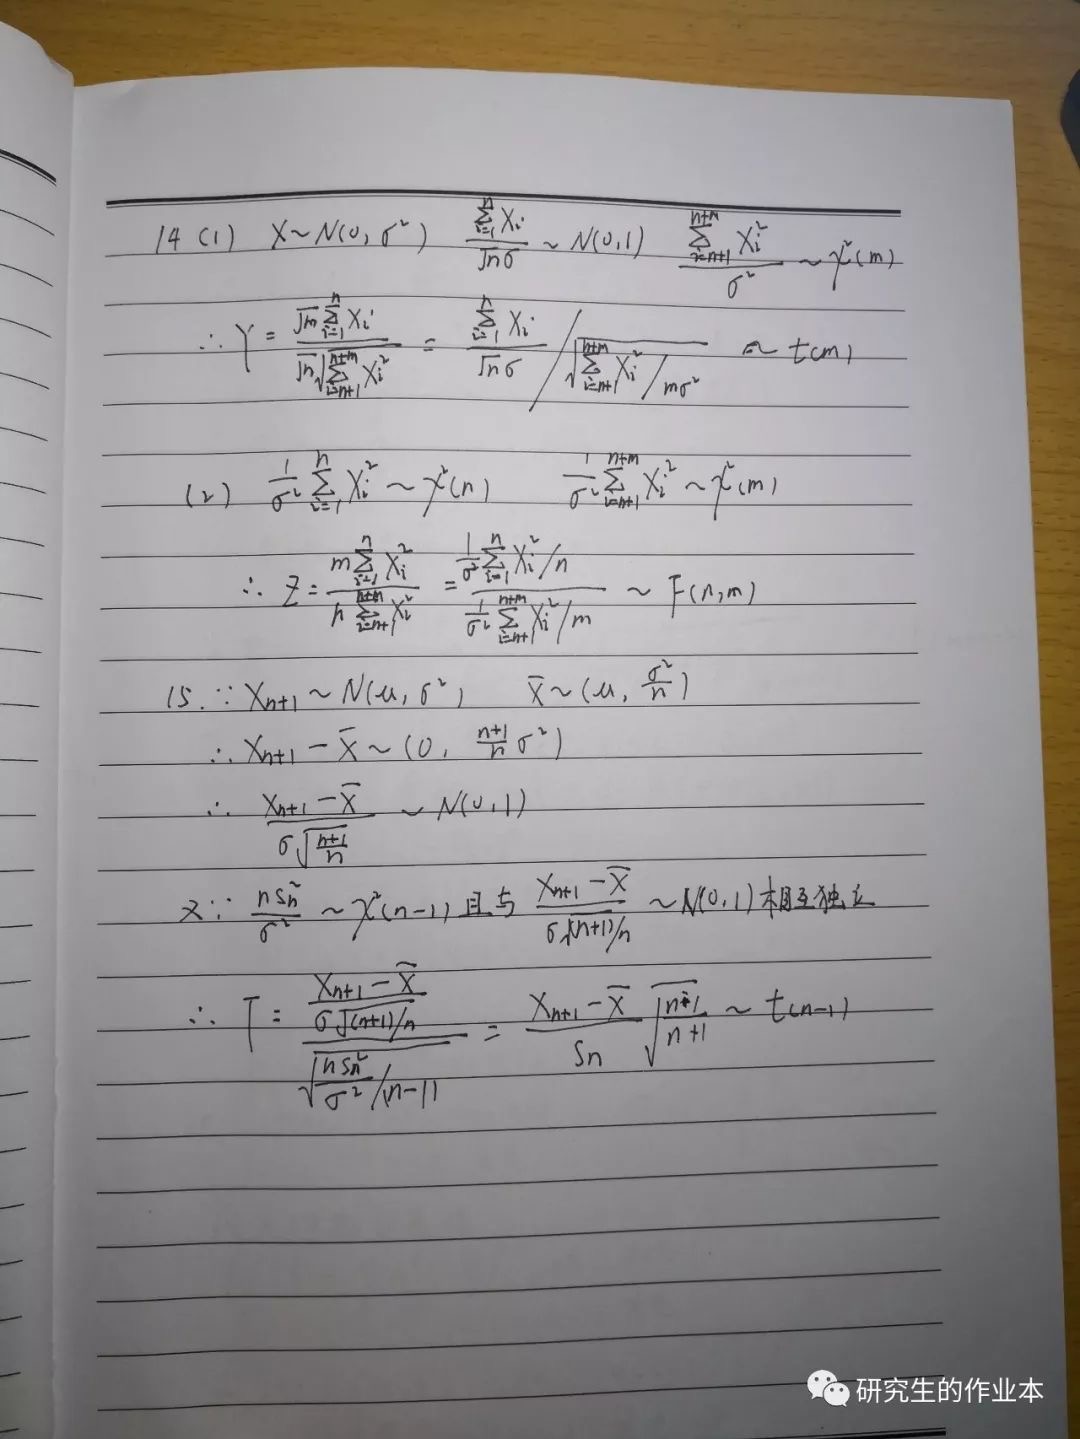 14 (1) X~N(0, σ²) \frac{\sum_{i=1}^{n} X_i}{\sqrt{n}σ} ~ N(0,1) \frac{\sum_{i=n+1}^{n+m} X_i^2}{σ^2} ~ χ²(m)
∴ Y = \frac{\sqrt{m}\sum_{i=1}^{n} X_i}{\sqrt{n}\sqrt{\sum_{i=n+1}^{n+m} X_i^2}} = \frac{\sum_{i=1}^{n} X_i}{\sqrt{n}σ} / \sqrt{\sum_{i=n+1}^{n+m} X_i^2 / mσ^2} ~ t(m)
(2) \frac{1}{σ^2}\sum_{i=1}^{n} X_i^2 ~ χ²(n) \frac{1}{σ^2}\sum_{i=n+1}^{n+m} X_i^2 ~ χ²(m)
∴ Z = \frac{m\sum_{i=1}^{n} X_i^2}{n\sum_{i=n+1}^{n+m} X_i^2} = \frac{\frac{1}{σ^2}\sum_{i=1}^{n} X_i^2/n}{\frac{1}{σ^2}\sum_{i=n+1}^{n+m} X_i^2/m} ~ F(n,m)
15. ∵ X_{n+1} ~ N(μ, σ²) \bar{X} ~ (μ, \frac{σ^2}{n})
∴ X_{n+1} - \bar{X} ~ (0, \frac{n+1}{n}σ²)
∴ \frac{X_{n+1} - \bar{X}}{σ\sqrt{\frac{n+1}{n}}} ~ N(0,1)
又∵ \frac{nS_n^2}{σ^2} ~ χ²(n-1) 且与 \frac{X_{n+1} - \bar{X}}{σ\sqrt{(n+1)/n}} ~ N(0,1) 相互独立
∴ T = \frac{\frac{X_{n+1} - \bar{X}}{σ\sqrt{(n+1)/n}}}{\sqrt{\frac{nS_n^2}{σ^2}/(n-1)}} = \frac{X_{n+1} - \bar{X}}{S_n}\sqrt{\frac{n-1}{n+1}} ~ t(n-1)
研究生的作业本